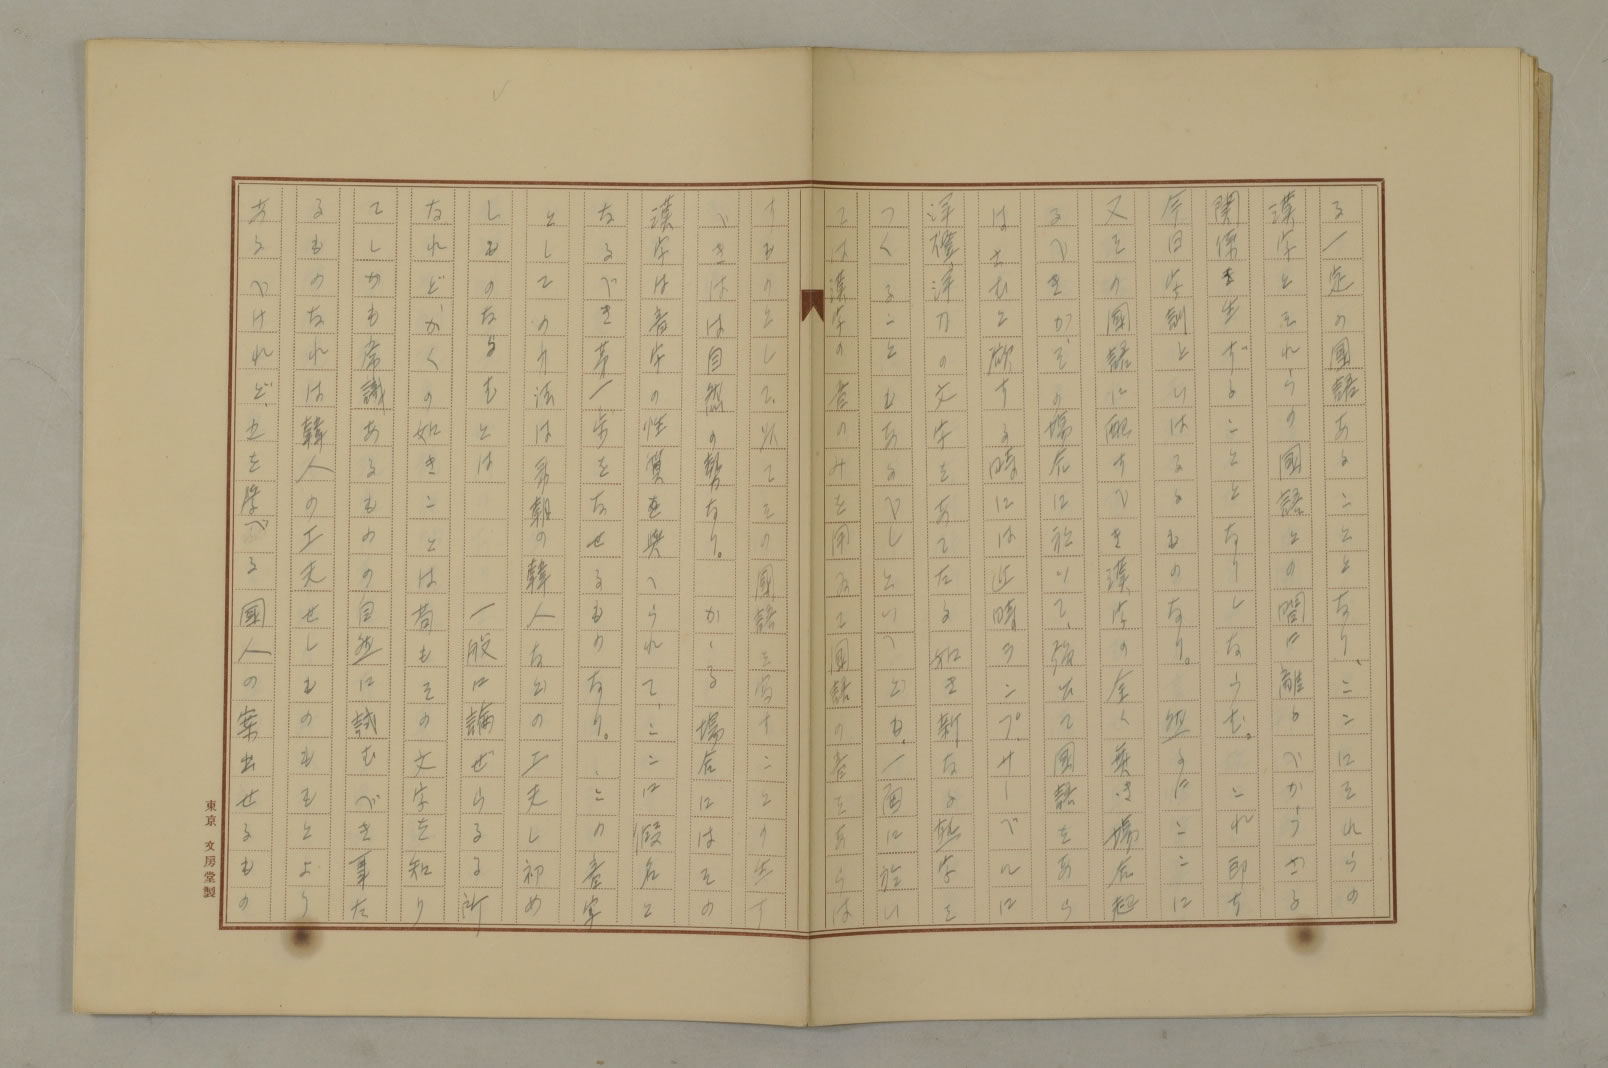 る一定の國語あることとなり、ここにそれらの
漢字とそれらの國語との間に離るべからざる
関係を生ずることとなりしならむ。これ即ち
今日字訓といはるるものなり。然るにここに
又その國語に配すべき漢字の全く無き場合起
るべきがその場合に於いて、強ひて國語をあら
はさむと欲する時には近時ランプ、サーベルに
洋燈洋刀の文字をあてたる如き新なる熟字を
つくることもあるべしといへども、一面に於い
ては漢字の音のみを用ゐて國語の音をあらは
すものとして、以てその國語を写すことの生ず
べきは自然の勢なり。かゝる場合にはその
漢字は音字の性質を與へられて、ここに假名と
なるべき第一歩をなせるものなり。この音字
としての方法は
の韓人などの工夫し初め
しものなるもとは 一般に論ぜらるる所
なれどかくの如きことは苟もその文字を知り
てしかも常識あるものの自然に試むべき事た
るものなれば韓人の工夫せしものもとより
あるべけれど、之を學べる國人の案出せるもの
東京 文房堂製